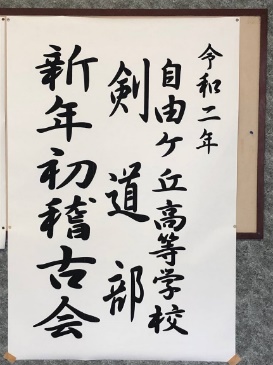 令和二年
自由ケ丘高等学校
剣道部
新年初稽古会